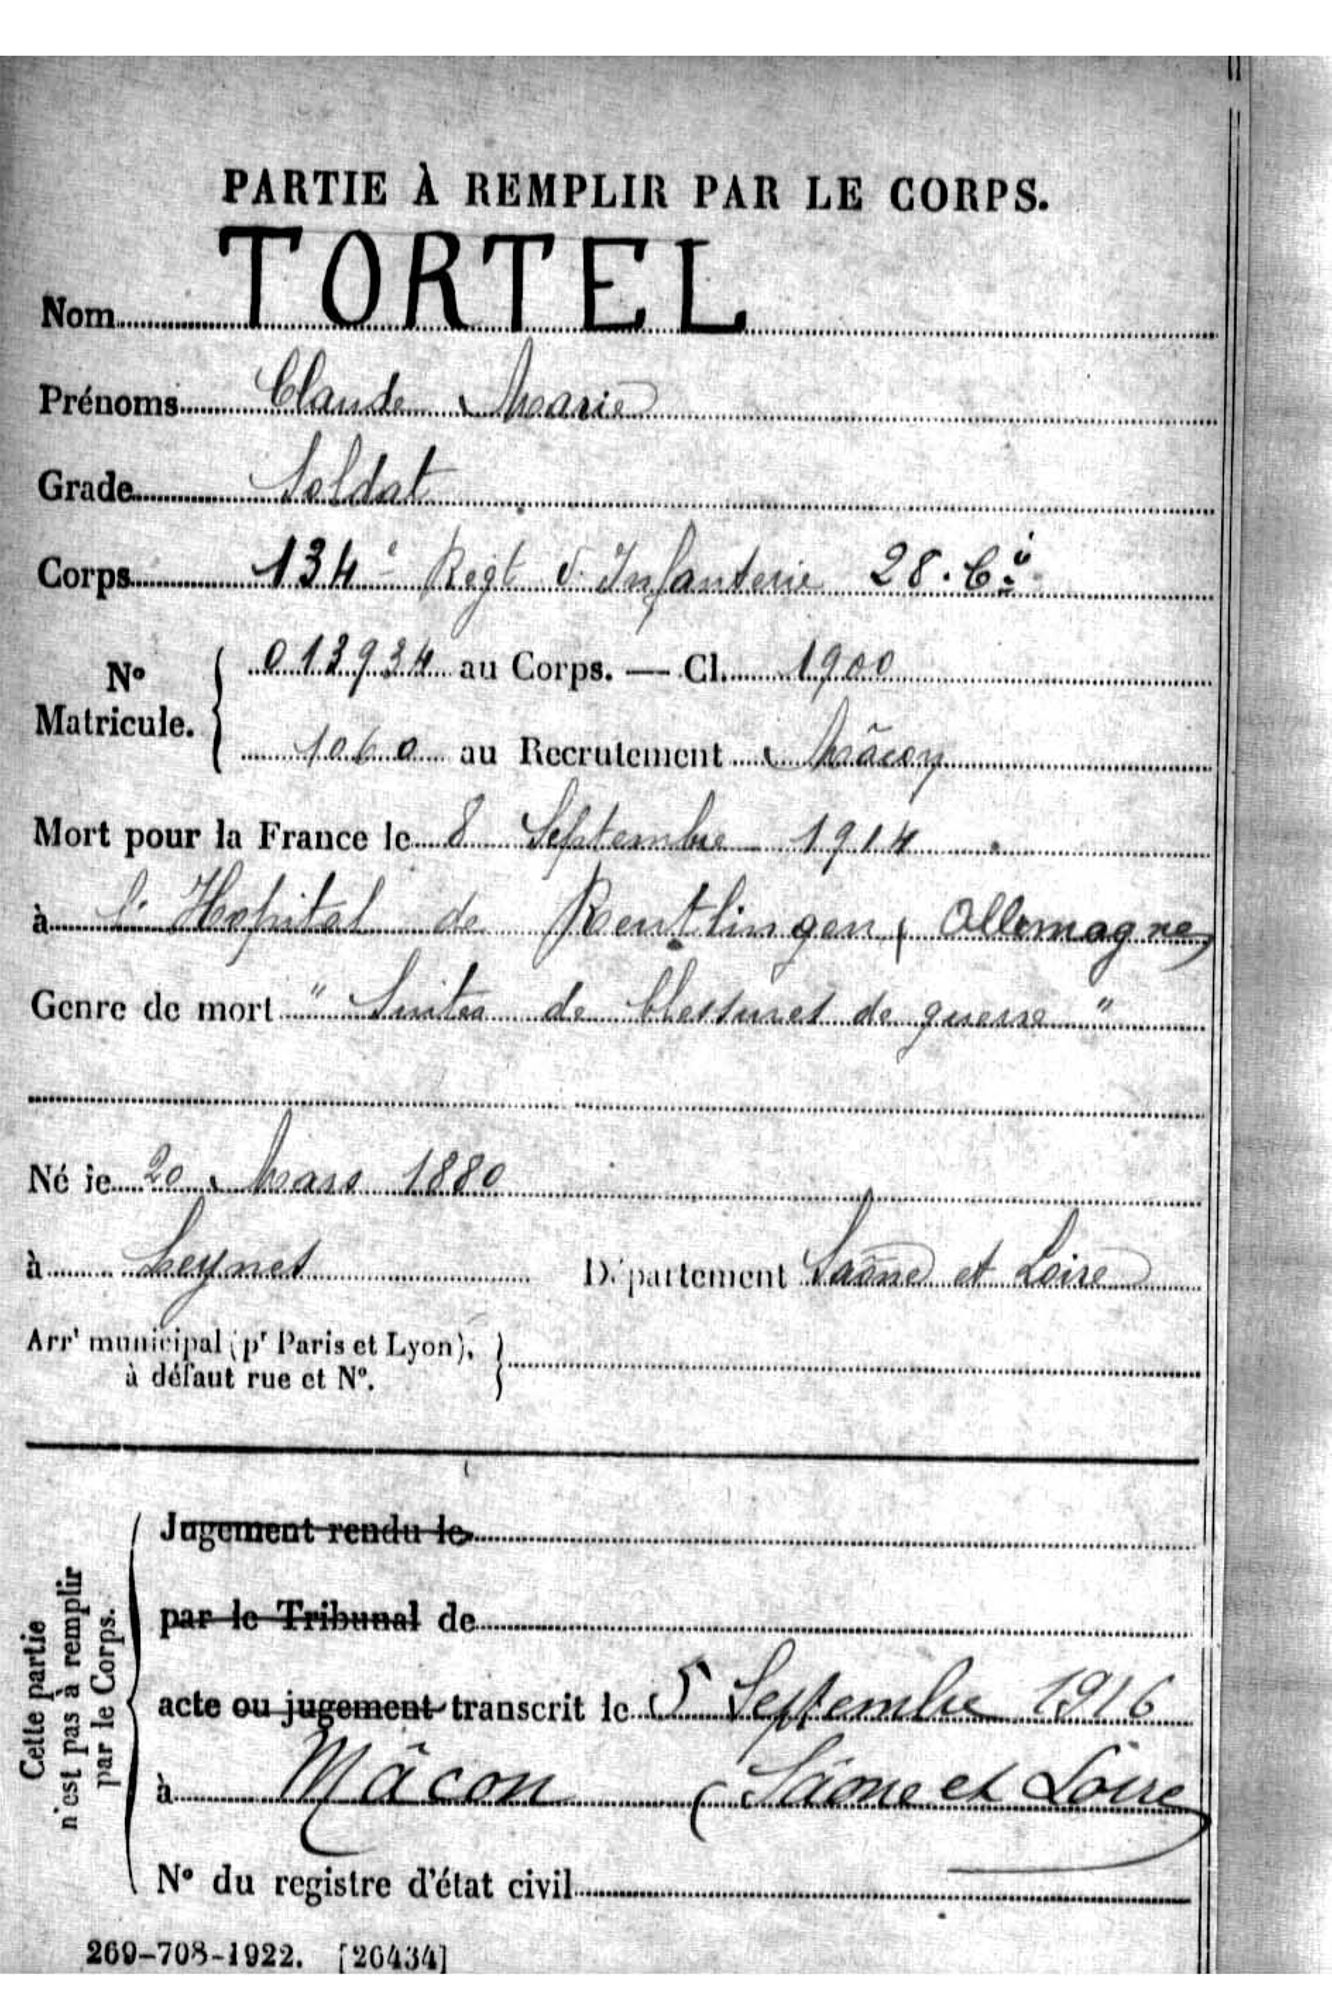 PARTIE À REMPLIR PAR LE CORPS.
Nom TORTEL
Prénoms Claude Marie
Grade Soldat
Corps 134e Regt d'Infanterie 28. Cie
No Matricule. 013934 au Corps. — Cl. 1900
1060 au Recrutement Mâcon
Mort pour la France le 8 Septembre 1914
à l'Hopital de Reutlingen (Allemagne)
Genre de mort "Suites de blessures de guerre"
Né le 20 Mars 1880
à Leynes Département Saône et Loire
Arrt municipal (pr Paris et Lyon),
à défaut rue et No.
Cette partie
n'est pas à remplir
par le Corps.
Jugement rendu le
par le Tribunal de
acte ou jugement transcrit le 5 Septembre 1916
à Mâcon (Saône et Loire)
No du registre d'état civil
269-708-1922. [26434]